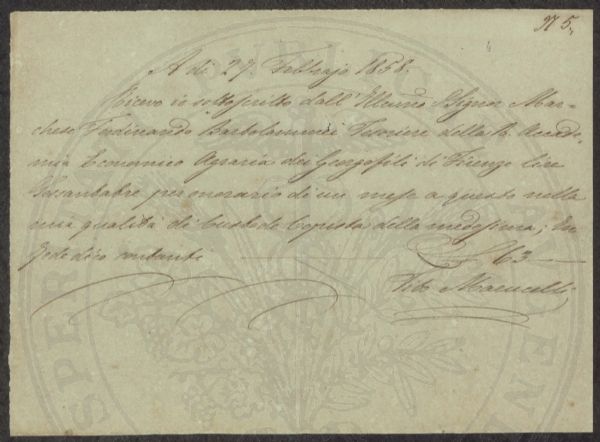 N. 5.
A di 27. Febbrajo 1858.
Ricevo io sottoscritto dall'Illmo Signor Mar-
chese Ferdinando Bartolommei Tesoriere della R. Accade-
mia Economico Agraria dei Georgofili di Firenze lire
Sessantatre per onorario di un mese a questo nella
mia qualità di Custode Copista della medesima; In
fede dico contanti £ 63.
Vito Marucelli